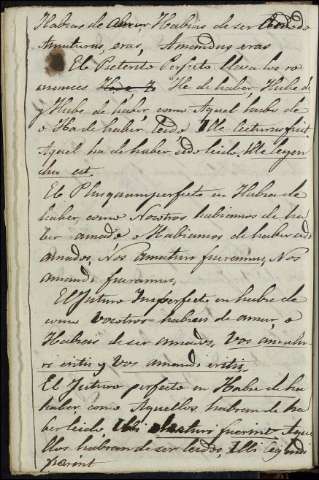 Habias de amar, Habias de ser amado
Amaturus, eras, Amandus eras
El Preterito Perfecto lleva los ro
manceos He de haber Hube de
y Hube de haber, como Aquel hubo de
o Ha de haber leido Ille lecturus fuit
Aquel ha de haber sido leido, Ille legen
dus est.
El Plusquamperfecto en Habia de
haber, como Nosotros habiamos de ha
ber amado o Habiamos de haber sido
amados, Nos amaturi fueramus, Nos
amandi fueramus,
El Futuro Imperfecto en hubre de
como Vosotros habreis de amar, o
Habreis de ser amados, Vos amatu
ri eritis y Vos amandi eritis.
El Futuro perfecto en Habre de ha
haber como Aquellos habran de ha
ber leido Illi lecturi fuerint Aque
llos habran de ser leidos, Illi legendi
fuerint